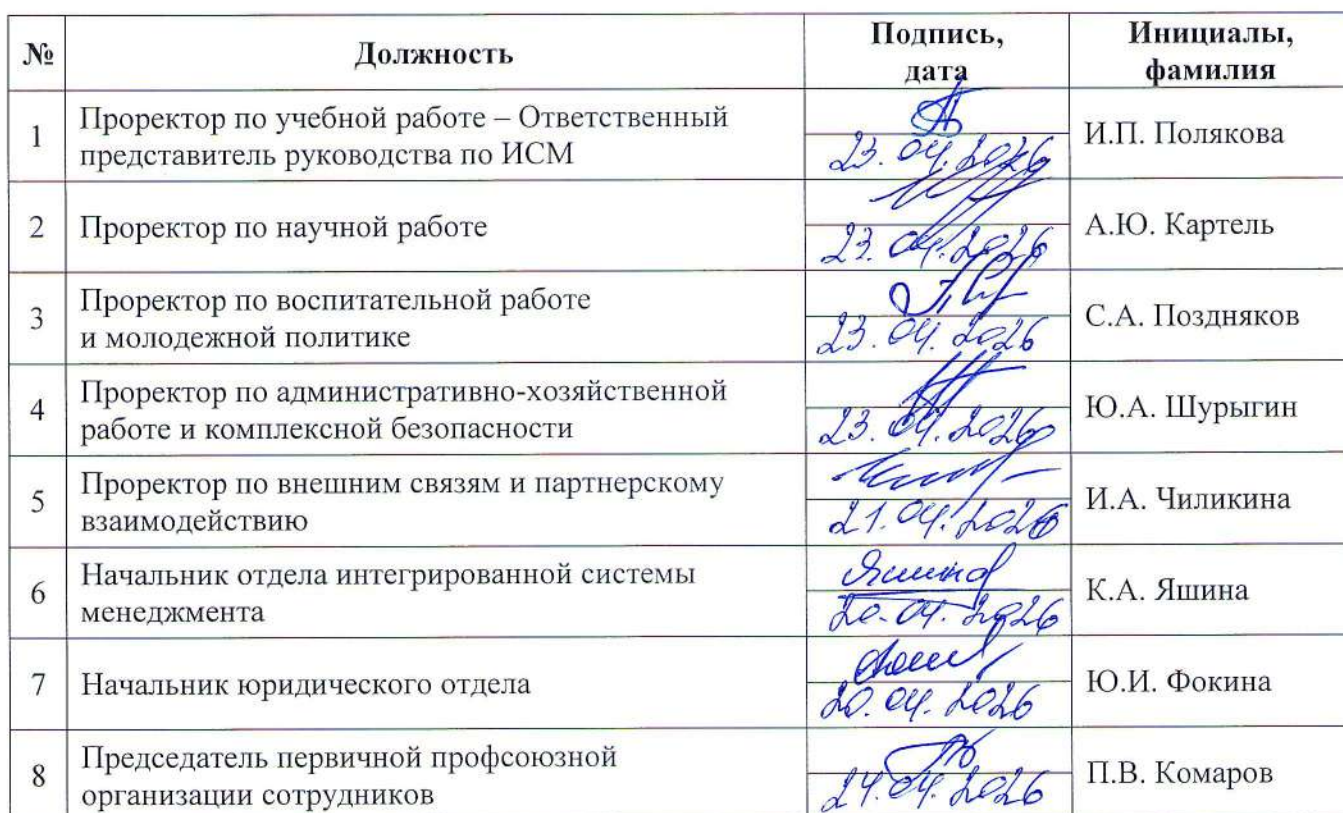 № Должность Подпись, дата Инициалы, фамилия
1 Проректор по учебной работе – Ответственный
представитель руководства по ИСМ
23.04.2026
И.П. Полякова
2 Проректор по научной работе
23.04.2026
А.Ю. Картель
3 Проректор по воспитательной работе
и молодежной политике
23.04.2026
С.А. Поздняков
4 Проректор по административно-хозяйственной
работе и комплексной безопасности
23.04.2026
Ю.А. Шурыгин
5 Проректор по внешним связям и партнерскому
взаимодействию
21.04.2026
И.А. Чиликина
6 Начальник отдела интегрированной системы
менеджмента
20.04.2026
К.А. Яшина
7 Начальник юридического отдела
20.04.2026
Ю.И. Фокина
8 Председатель первичной профсоюзной
организации сотрудников
24.04.2026
П.В. Комаров